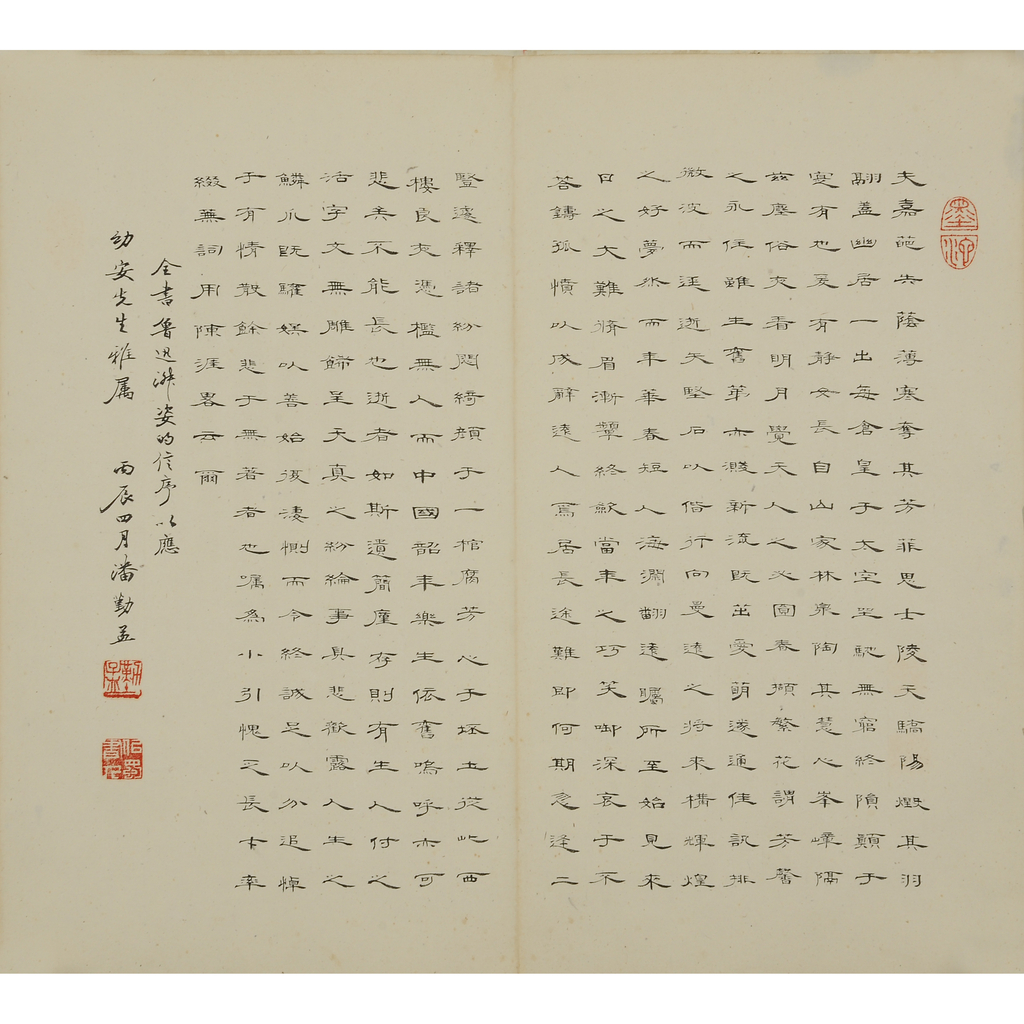 夫嘉葩失蔭薄寒奪其芳菲思士陵天驕陽燬其羽
翮蓋幽居一出每倉皇于太空坐馳無窮終隕顛于
寔有也爰有靜女長自山家林泉陶其慧心峯嶂隔
茲塵俗夜看明月覺天人之必圓春擷繁花謂芳馨
之永住雖生舊第亦濺新流既茁愛萌遂通佳訊排
微波而逕逝矢堅石以偕行向曼遠之將來構輝煌
之好夢然而年華春短人海瀾翻遠矚所至始見來
日之大難脩眉漸顰終斂當年之巧笑啣深哀于不
荅鑄孤憤以成辭遠人焉居長途難即何期忽逢二
豎遽釋諸紛閟綺顏于一棺腐芳心于坏土從此西
樓良夜憑檻無人而中國韶年樂生依舊嗚呼亦可
悲矣不能長也逝者如斯遺簡廑存則有生人付之
活字文無雕飾呈天真之紛綸事具悲歡露人生之
鱗爪既驩娱以善始復凄惻而令終誠足以分追悼
于有情散餘悲于無著者也囑為小引愧乏長才率
綴蕪詞用陳涯畧云爾
全書魯迅淑姿的信序以應
幼安先生雅屬 丙辰四月潘勤孟
勤孟